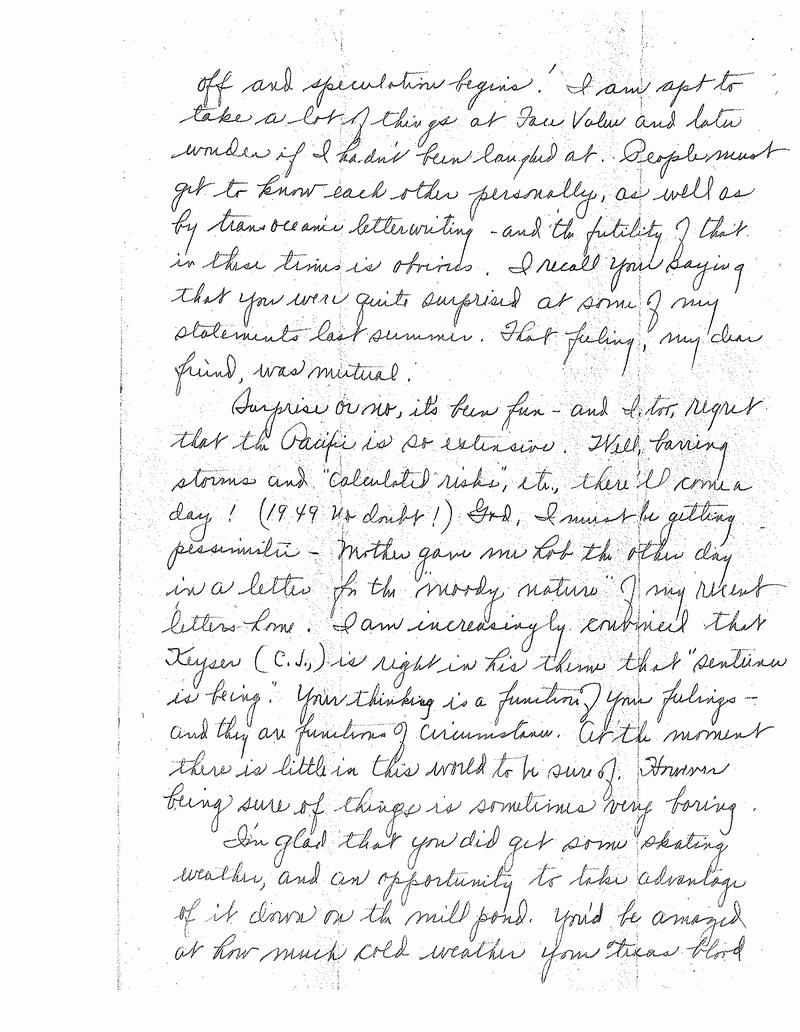 off and speculation begins.' I am apt to
take a lot of things at Face Value and later
wonder if I hadn't been laughed at. People must
get to know each other personally, as well as
by transoceanic letterwriting - and the futility of that
in these times is obvious. I recall your saying
that you were quite surprised at some of my
statements last summer. That feeling, my dear
friend, was mutual.
Surprise or no, it's been fun - and I, too, regret
that the Pacific is so extensive. Well, barring
storms and "calculated risks", etc., there'll come a
day! (1949 no doubt!) God, I must be getting
pessimistic - Mother gave me hob the other day
in a letter for the "moody nature" of my recent
letters home. I am increasingly convinced that
Keyser (C.J.,) is right in his theme that "sentience
is being." Your thinking is a function of your feelings -
and they are functions of circumstance. At the moment
there is little in this world to be sure of. However
being sure of things is sometimes very boring.
I'm glad that you did get some skating
weather, and an opportunity to take advantage
of it down on the mill pond. You'd be amazed
at how much cold weather your Texas blood